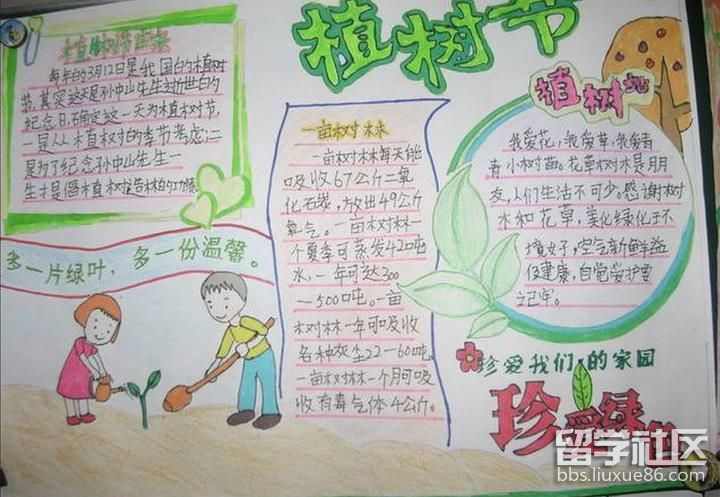 植树节
植树节由来
每年的3月12日是我国的植树
节,其实这是孙中山先生逝世的
纪念日,确定这一天为植树节,
一是从植树的季节考虑;二
是为了纪念孙中山先生一
生才是倡植树造林的功绩。
多一片绿叶,多一份温馨。
一亩树林
一亩树林每天能
吸收67公斤二氧
化石炭,放出49公斤
氧气。一亩树林一
个夏季可蒸发420吨
水,一年可达300
—500吨。一亩
树林一年可吸收
各种灰尘22—60吨,
一亩树林一个月可吸
收有毒气体4公斤。
植树
我爱花,我爱草,我爱青
青小树苗。花草树木是朋
友,人们生活不可少。感谢树
木和花草,美化绿化
环境好,空气新鲜益
健康,自觉爱护要
记牢。
珍爱我们的家园
珍爱绿
留学社区
bbs.liuxue86.com